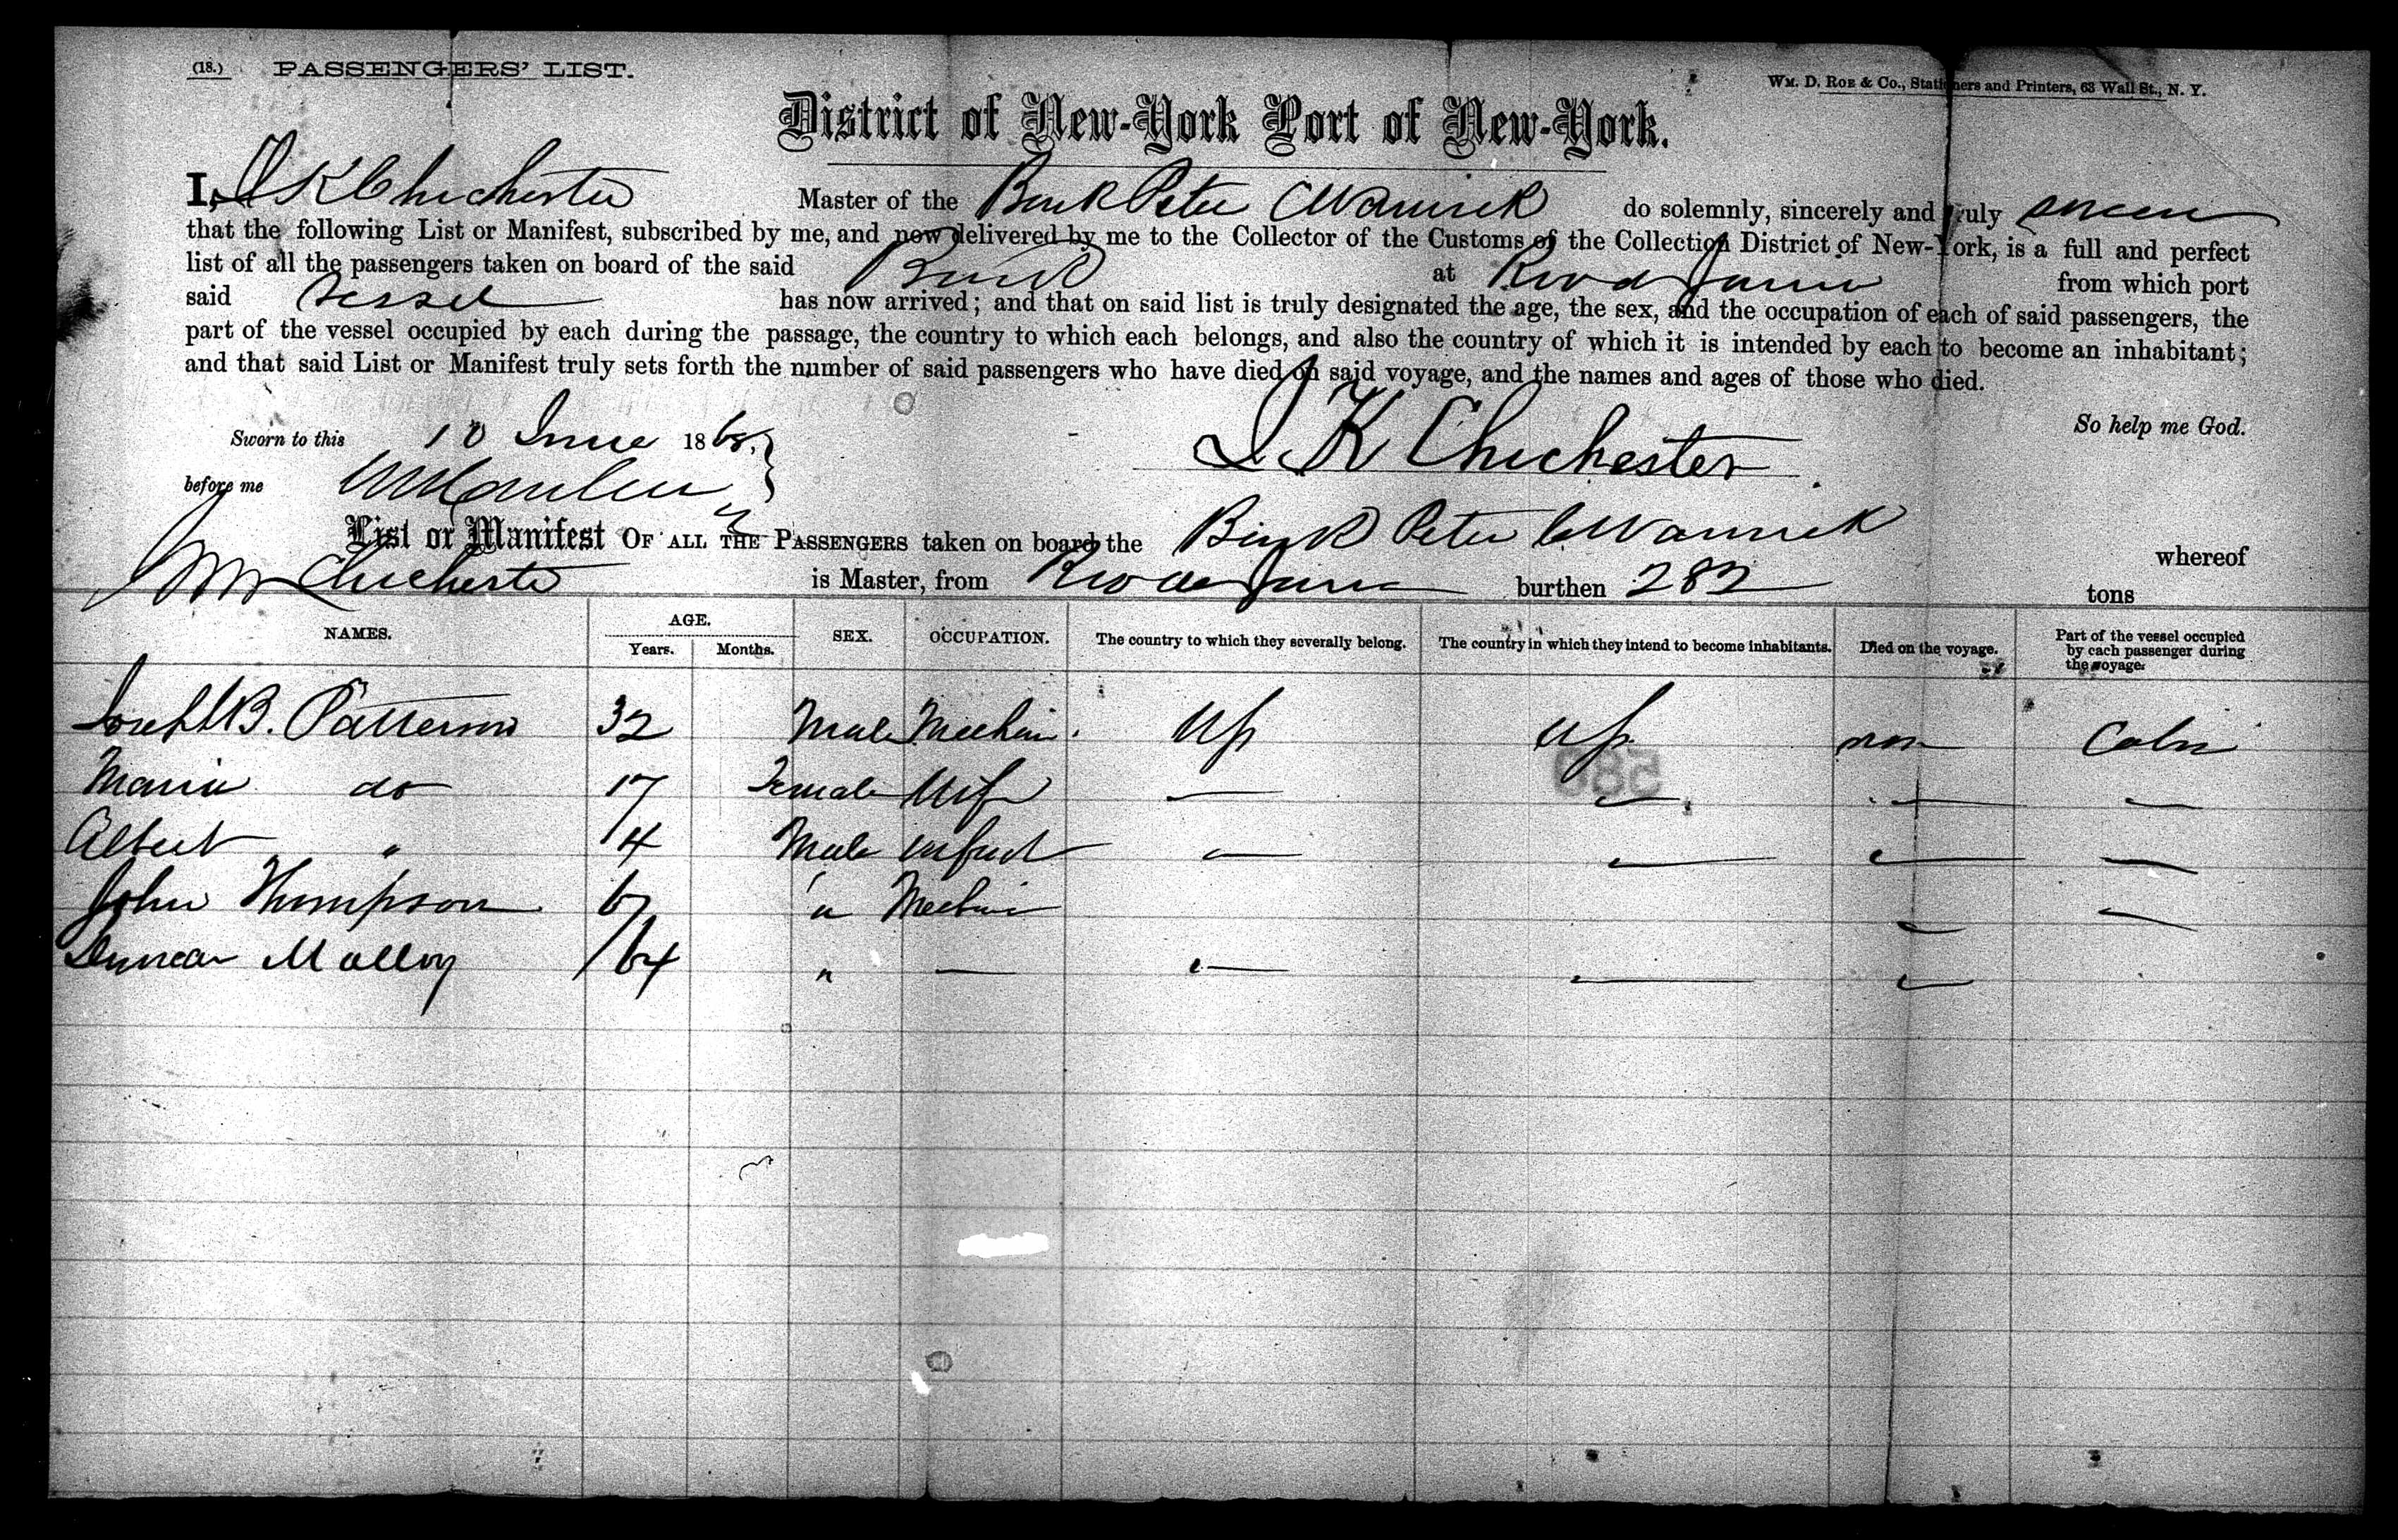 (18.) PASSENGERS' LIST.
Wm. D. Roe & Co., Stationers and Printers, 63 Wall St., N. Y.
District of New-York Port of New-York.
I, I K Chichester Master of the Bark Peter C Warwick do solemnly, sincerely and truly swear
that the following List or Manifest, subscribed by me, and now delivered by me to the Collector of the Customs of the Collection District of New-York, is a full and perfect
list of all the passengers taken on board of the said Bark at Rio d Janeiro from which port
said Vessel has now arrived; and that on said list is truly designated the age, the sex, and the occupation of each of said passengers, the
part of the vessel occupied by each during the passage, the country to which each belongs, and also the country of which it is intended by each to become an inhabitant;
and that said List or Manifest truly sets forth the number of said passengers who have died on said voyage, and the names and ages of those who died.
So help me God.
Sworn to this 10 June 1868.
I K Chichester.
before me
List or Manifest OF ALL THE PASSENGERS taken on board the Bark Peter C Warwick whereof
Chichester is Master, from Rio de Janeiro burthen 282 tons
NAMES. AGE. Years. Months. SEX. OCCUPATION. The country to which they severally belong. The country in which they intend to become inhabitants. Died on the voyage. Part of the vessel occupied by each passenger during the voyage.
Joseph B. Patterson 32 Male Mechanic US US non Cabin
Maria do 17 Female Wife —
Albert " 14 Male infant —
John Thompson " Mechanic
Duncan Malloy 64 " —
580